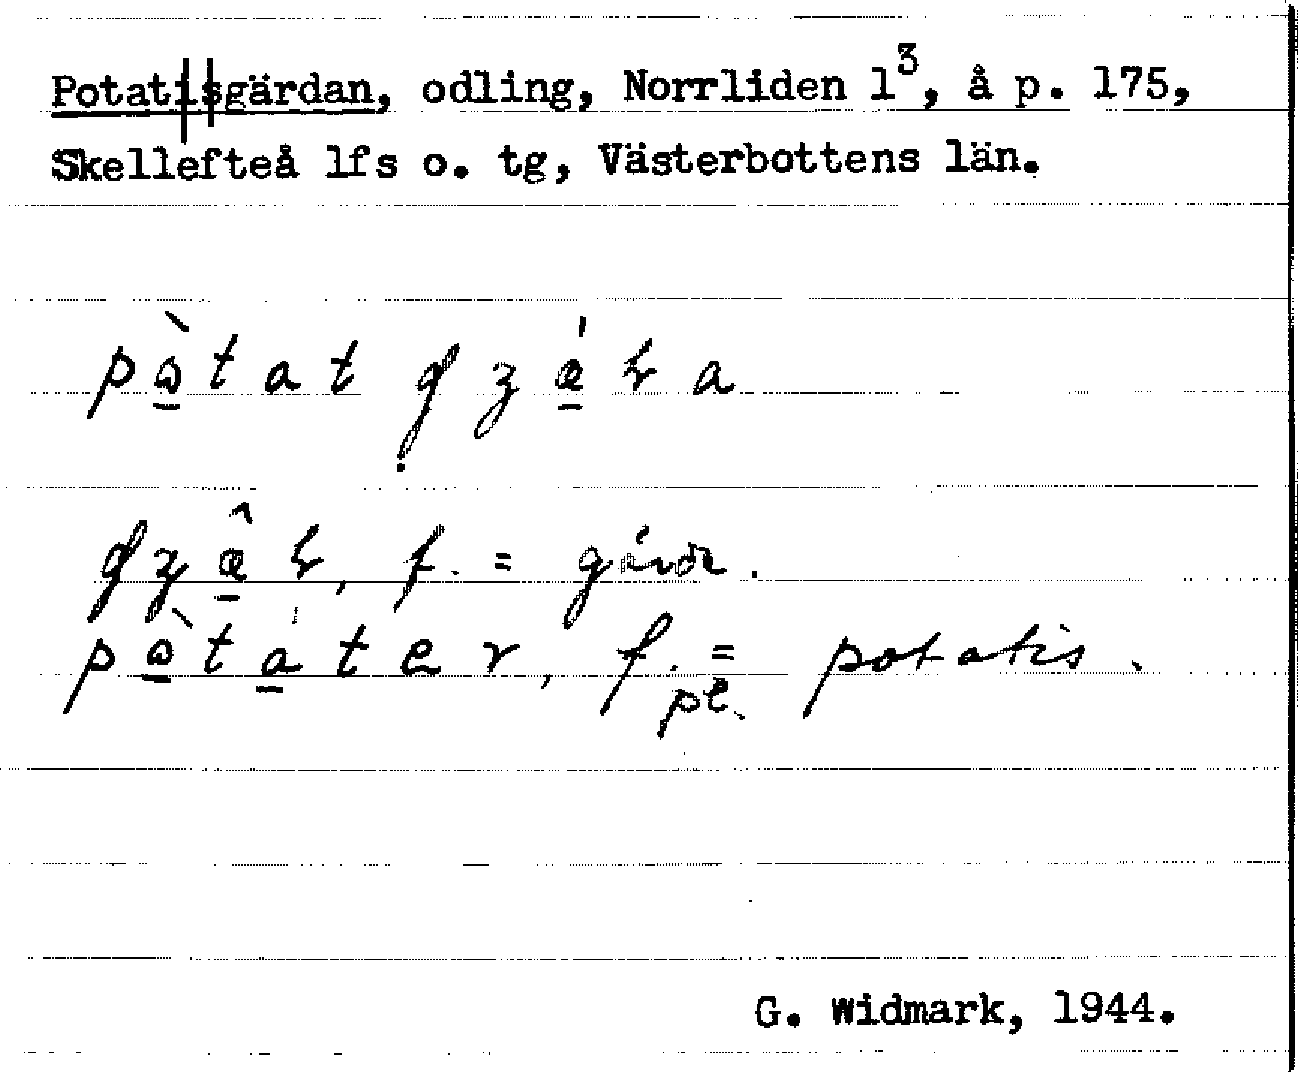 Potatisgärdan, odling, Norrliden 1³, å p. 175,
Skellefteå lfs o. tg, Västerbottens län.
f. = gärda.
f. pl. = potatis.
G. Widmark, 1944.